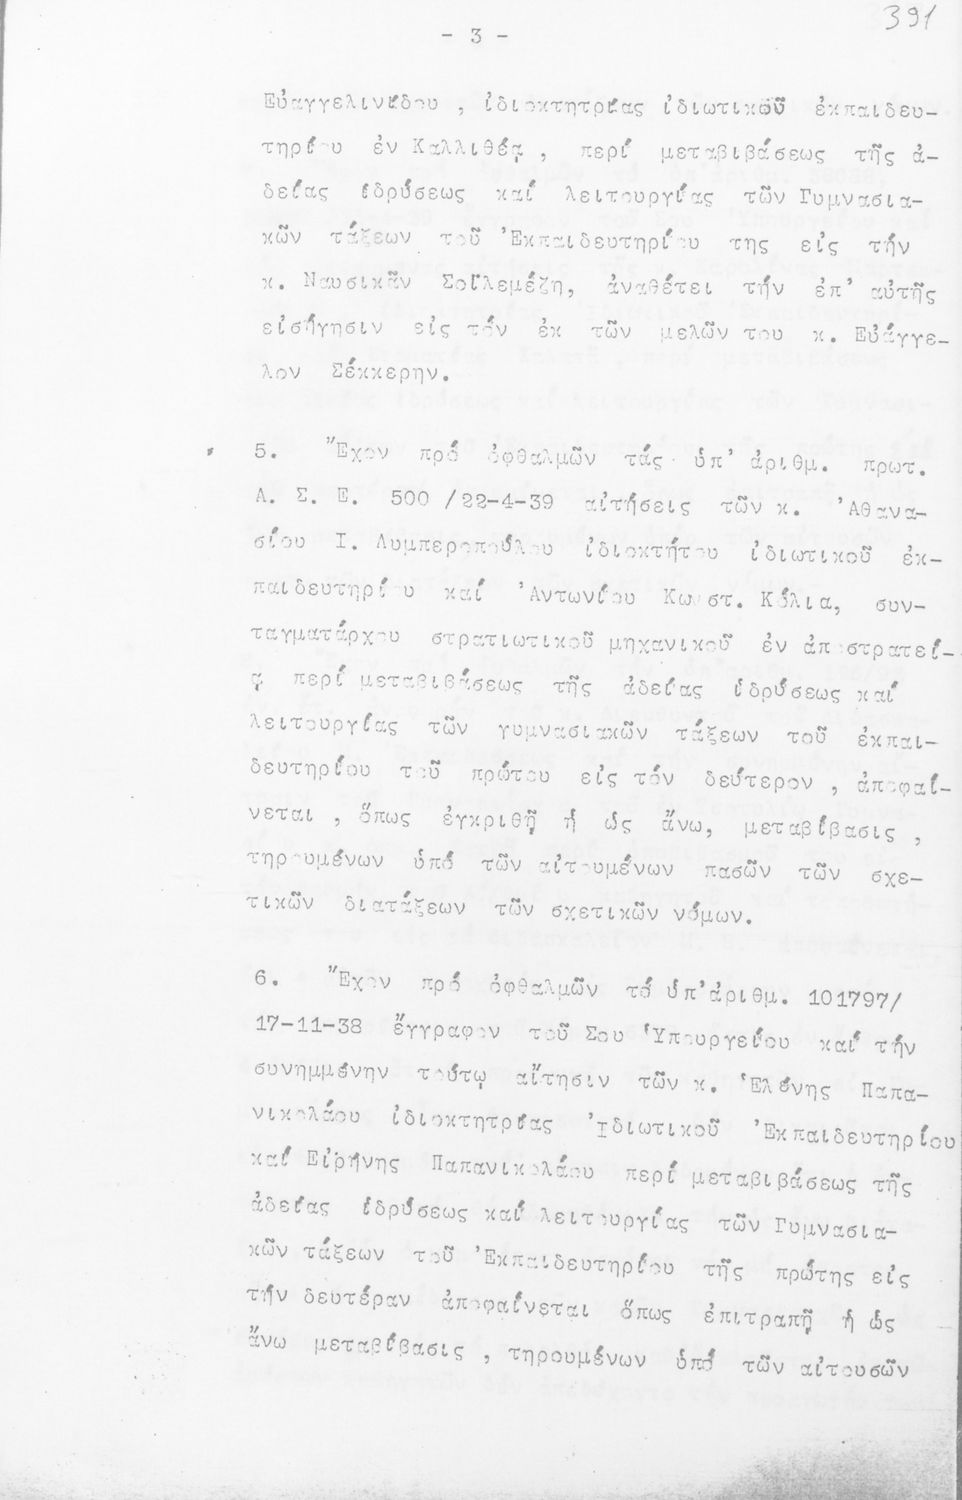 391
- 3 -
Εὐαγγελινίδου , ἰδιοκτητρίας ἰδιωτικοῦ ἐκπαιδευ-
τηρίου ἐν Καλλιθέᾳ , περί μεταβιβάσεως τῆς ἀ-
δείας ἱδρύσεως καί λειτουργίας τῶν Γυμνασια-
κῶν τάξεων τοῦ Ἐκπαιδευτηρίου της εἰς τήν
κ. Ναυσικᾶν Σοϊλεμέζη, ἀναθέτει τήν ἐπ' αὐτῆς
εἰσήγησιν εἰς τόν ἐκ τῶν μελῶν του κ. Εὐάγγε-
λον Σέκκερην.
5. Ἔχον πρό ὀφθαλμῶν τάς ὑπ' ἀριθμ. πρωτ.
Α. Σ. Ε. 500 /22-4-39 αἰτήσεις τῶν κ. Ἀθανα-
σίου Ι. Λυμπεροπούλου ἰδιοκτήτου ἰδιωτικοῦ ἐκ-
παιδευτηρίου καί Ἀντωνίου Κωνστ. Κόλια, συν-
ταγματάρχου στρατιωτικοῦ μηχανικοῦ ἐν ἀποστρατεί-
ᾳ περί μεταβιβάσεως τῆς ἀδείας ἱδρύσεως καί
λειτουργίας τῶν γυμνασιακῶν τάξεων τοῦ ἐκπαι-
δευτηρίου τοῦ πρώτου εἰς τόν δεύτερον , ἀποφαί-
νεται , ὅπως ἐγκριθῇ ἡ ὡς ἄνω, μεταβίβασις ,
τηρουμένων ὑπό τῶν αἰτουμένων πασῶν τῶν σχε-
τικῶν διατάξεων τῶν σχετικῶν νόμων.
6. Ἔχον πρό ὀφθαλμῶν τό ὑπ'ἀριθμ. 101797/
17-11-38 ἔγγραφον τοῦ Σου Ὑπουργείου καί τήν
συνημμένην τούτῳ αἴτησιν τῶν κ. Ἑλένης Παπα-
νικολάου ἰδιοκτητρίας Ἰδιωτικοῦ Ἐκπαιδευτηρίου
καί Εἰρήνης Παπανικολάου περί μεταβιβάσεως τῆς
ἀδείας ἱδρύσεως καί λειτουργίας τῶν Γυμνασια-
κῶν τάξεων τοῦ Ἐκπαιδευτηρίου τῆς πρώτης εἰς
τήν δευτέραν ἀποφαίνεται ὅπως ἐπιτραπῇ ἡ ὡς
ἄνω μεταβίβασις , τηρουμένων ὑπό τῶν αἰτουσῶν